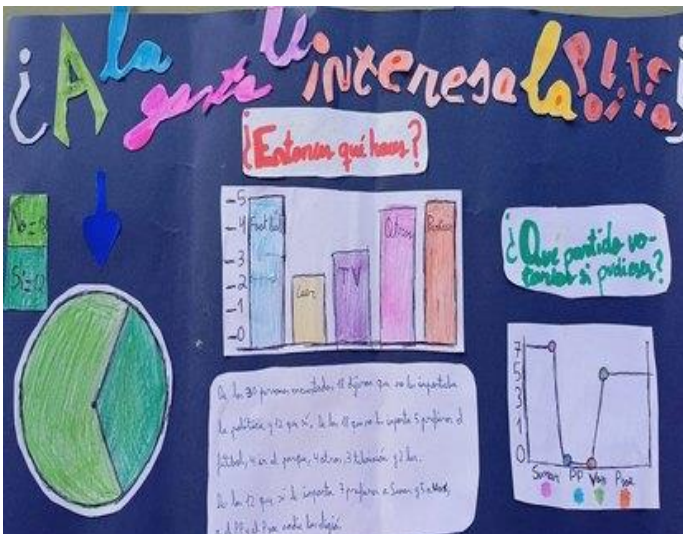 ¿A la gente le interesa la política
¿Entonces qué haces?
No=18
Sí=12
-5
-4
-3
-2
-1
-0
Football
Leer
TV
Otros
Parque
¿Qué partido vo-
tarías si pudieses?
7
5
3
1
0
Sumar PP Vox Psoe
De las 30 personas encuestadas 18 dijeron que no le importaba
la política y 12 que sí. De los 18 que no le importa 5 prefieren el
fútbol, 4 ir al parque, 4 otros, 3 televisión y 2 leer.
De los 12 que sí le importa 7 prefieren a Sumar y 5 a Vox,
el PP y el Psoe nadie los eligió.